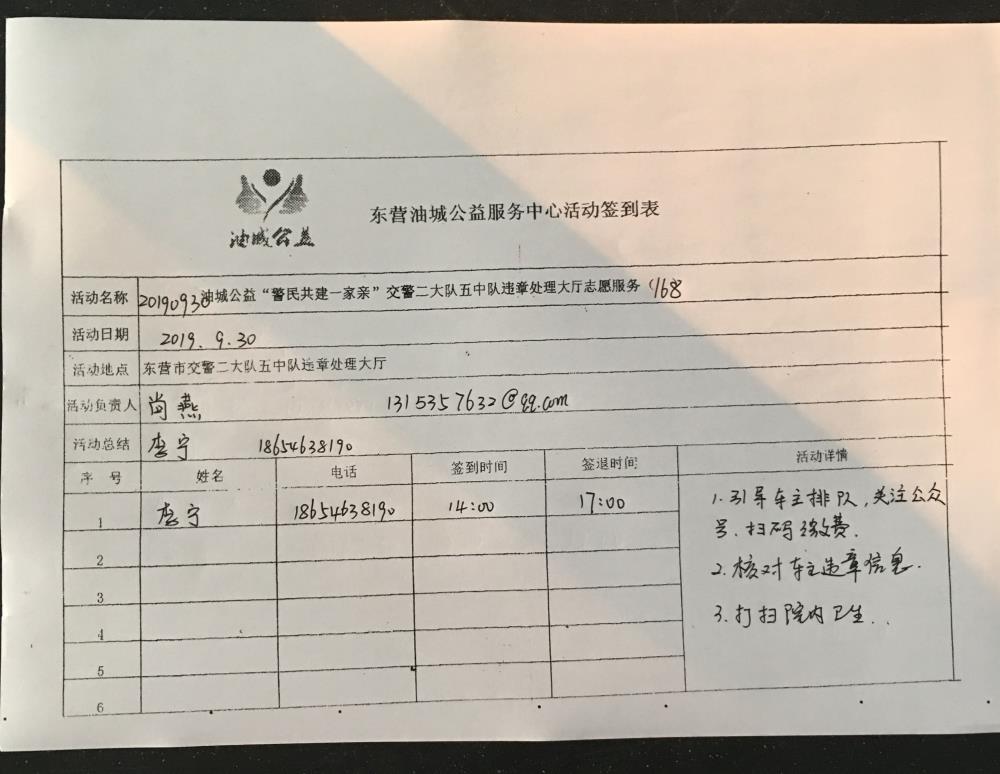 油城公益
东营油城公益服务中心活动签到表
活动名称 20190930油城公益“警民共建一家亲”交警二大队五中队违章处理大厅志愿服务（168
活动日期 2019.9.30
活动地点 东营市交警二大队五中队违章处理大厅
活动负责人 尚燕 1315357632@qq.com
活动总结 李宁 18654638190
序号 姓名 电话 签到时间 签退时间 活动详情
1 李宁 18654638190 14:00 17:00
2
3
4
5
6
1.引导车主排队,关注公众
号.扫码缴费.
2.核对车主违章信息.
3.打扫院内卫生..